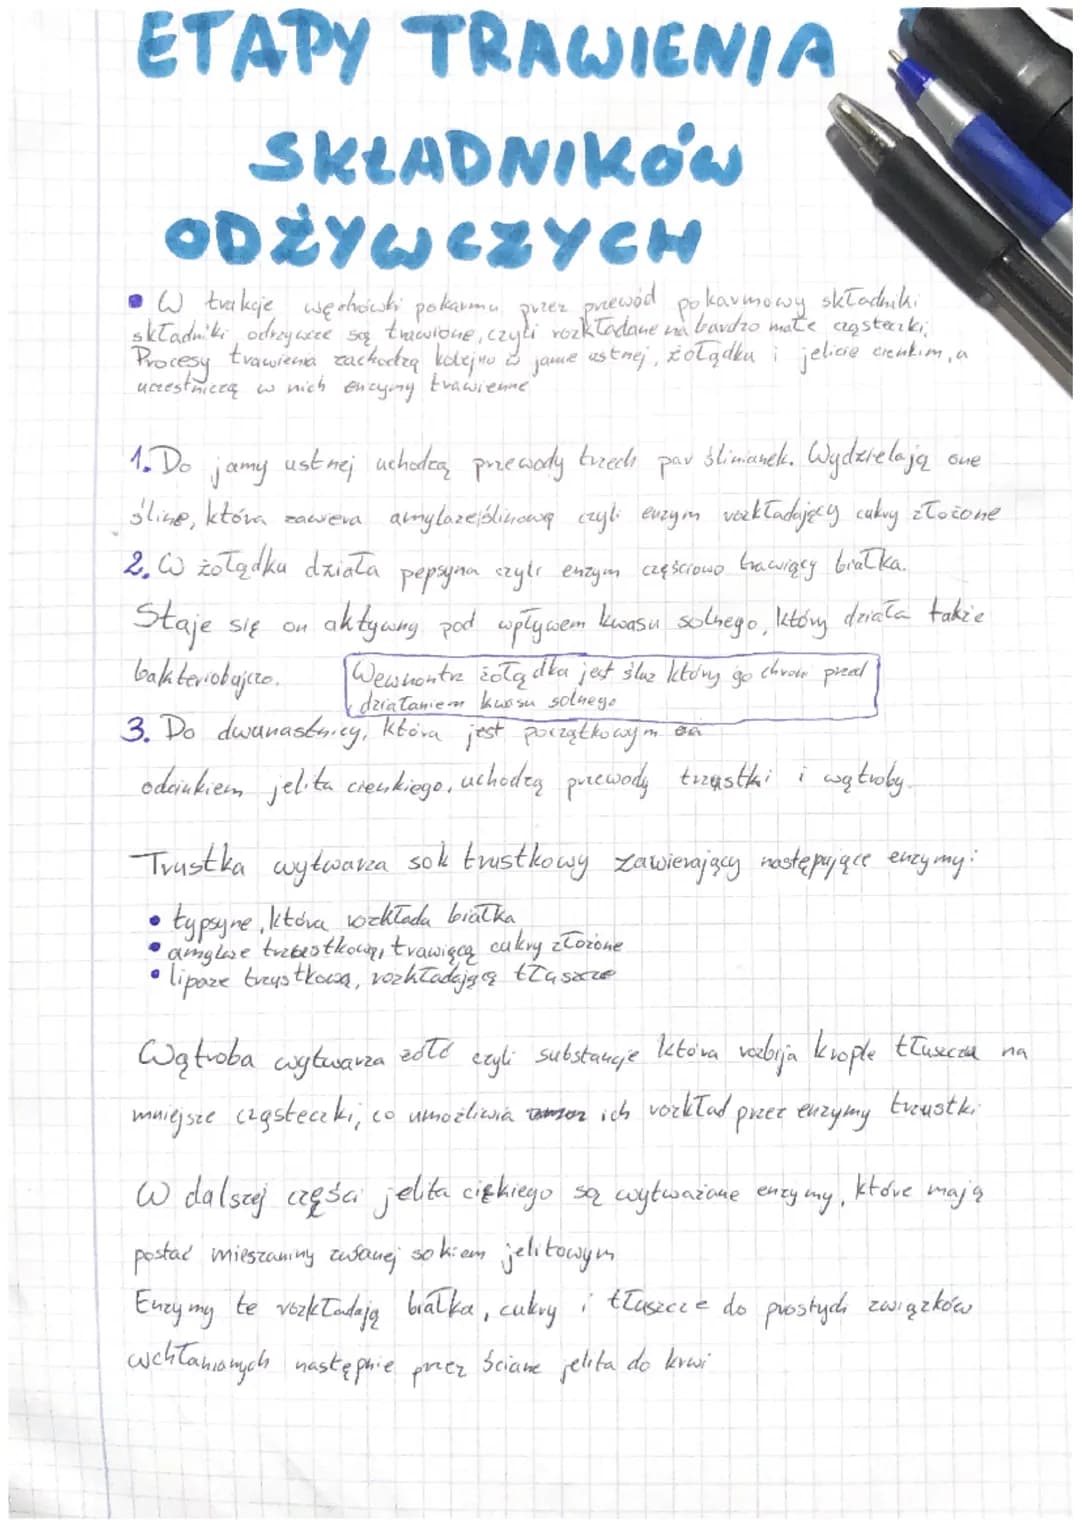 ETAPY TRAWIENIA
SKŁADNIKÓW
ODŻYWCZYCH
W trakcje węchówki pokarmu przez przewód pokarmowy składniki
składniki odrzywcze są trawione, czyli rozkładane na bardzo małe cząsteczki;
Procesy trawienia zachodzą kolejno w jamie ustnej, żołądku i jelicie cienkim, a
uczestniczą w nich enzymy trawienne
1. Do jamy ustnej uchodzą przewody trzech par ślinianek. Wydzielają one
śline, która zawiera amylaze ślinową czyli enzym rozkładający cukry złożone
2. W żołądku działa pepsyna czyli enzym częściowo trawiący białka.
Staje się on aktywny pod wpływem kwasu solnego, który działa także
bakteriobujczo.
Wewnontrz żołądka jest śluz który go chroni przed
działaniem kwasu solnego
3. Do dwunastnicy, która jest początkowym
odcinkiem jelita cienkiego, uchodzą przewody trzustki i wątroby.
Trustka wytwarza sok trustkowy zawierający następujące enzymy:
• typsyne, która rozkłada białka
• amylaze trzustkową, trawiącą cukry złożone
• lipaze trzustkową, rozkładającą tłuszcze
Wątroba wytwarza żółć czyli substancje która rozbija krople tłuszczu na
mniejsze cząsteczki, co umożliwia ich rozkład przez enzymy trzustki
W dalszej części jelita ciękiego są wytważane enzymy, które mają
postać mieszaniny zwanej sokiem jelitowym
Enzymy te rozkładają białka, cukry i tłuszcze do prostych związków
wchłanianych następnie przez ściane jelita do krwi